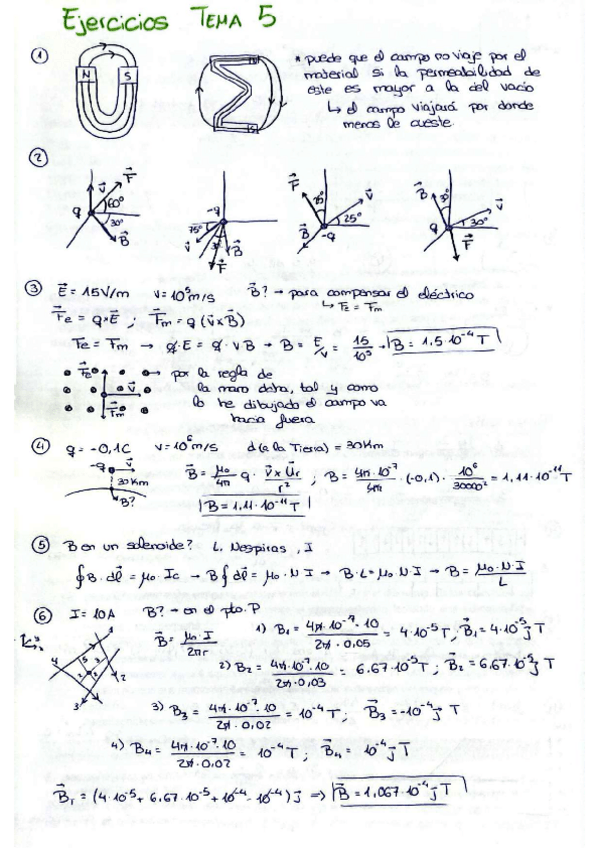 Ejercicios TEMA 5
①
N S
* puede que el campo no viaje por el
material si la permeabilidad de
este es mayor a la del vacío
↳ el campo viajará por donde
menos le cueste.
②
v F 60° q 30° B
-q 75° v B F
F B -q v 25°
B 30° v q 30° F
③ E = 15V/m v = 10⁵m/s B? → para compensar el eléctrico
↳ Fe = Fm
Fe = q·E ; Fm = q (v×B)
Fe = Fm → q·E = q·vB → B = E/v = 15/10⁵ → B = 1,5·10⁻⁴ T
Fe v Fm
→ por la regla de
la mano dcha, tal y como
lo he dibujado el campo va
hacia fuera.
④ q = -0,1C v = 10⁶m/s d(a la Tierra) = 30Km
-q v 30Km B?
B = μ₀/4π · q · v×Ur/r² ; B = 4π·10⁻⁷/4π · (-0,1) · 10⁶/30000² = 1,11·10⁻¹¹T
B = 1,11·10⁻¹¹ T
⑤ B en un solenoide? L, N espiras, I
∮B·dl = μ₀·Ic → B∮dl = μ₀·N·I → B·L = μ₀·N·I → B = μ₀·N·I/L
⑥ I = 10A B? → en el pto. P
B = μ₀·I/2πr
1) B₁ = 4π·10⁻⁷·10/2π·0,05 = 4·10⁻⁵T, B₁ = 4·10⁻⁵j T
2) B₂ = 4π·10⁻⁷·10/2π·0,03 = 6.67·10⁻⁵T ; B₂ = 6.67·10⁻⁵j T
3) B₃ = 4π·10⁻⁷·10/2π·0,02 = 10⁻⁴ T ; B₃ = 10⁻⁴j T
4) B₄ = 4π·10⁻⁷·10/2π·0,02 = 10⁻⁴ T ; B₄ = 10⁻⁴j T
B₁ = (4·10⁻⁵ + 6.67·10⁻⁵ + 10⁻⁴ - 10⁻⁴)j ⇒ B = 1,067·10⁻⁴j T